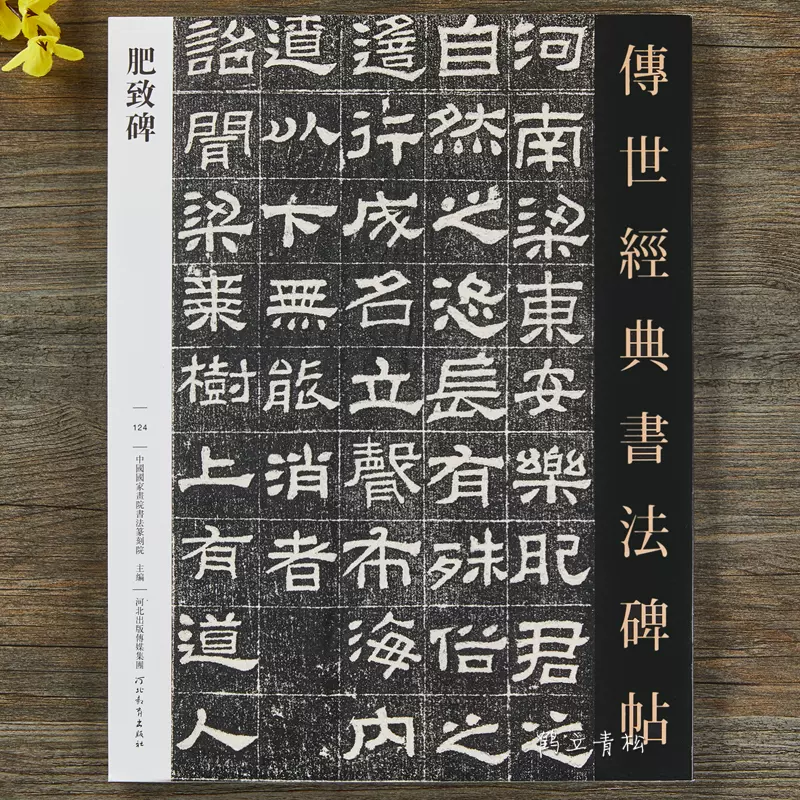 傳世經典書法碑帖
河南梁東安樂肥君之
自然之恣長有殊俗之
遙行成名立聲布海内
遼以下無能消者
詔聞梁棗樹上有道人
肥致碑
124
中國國家畫院書法篆刻院 主編
河北出版傳媒集團
河北教育出版社
鹤立青松